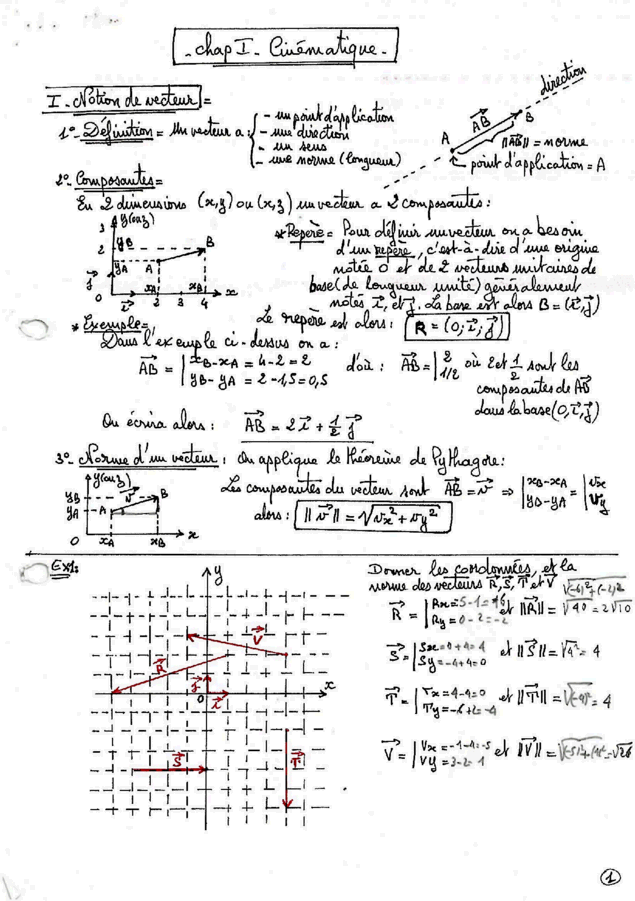 - chap I - Cinématique -
I - Notion de vecteur =
1°- Définition = Un vecteur a :
- un point d'application
- une direction
- un sens
- une norme (longueur)
direction
AB
A
B
||AB|| = norme
point d'application = A
2°- Composantes =
En 2 dimensions (x,y) ou (x,z) un vecteur a 2 composantes :
y(ou z)
3
2
yB
yA
A
B
j
O
i
xA
xB
2
3
4
x
* Repère = Pour définir un vecteur on a besoin
d'un repère, c'est-à-dire d'une origine
notée O et de 2 vecteurs unitaires de
base (de longueur unité) généralement
notés i, et j. La base est alors B = (i, j)
Le repère est alors : R = (O; i, j)
* Exemple =
Dans l'exemple ci-dessus on a :
AB = | xB - xA = 4 - 2 = 2
yB - yA = 2 - 1,5 = 0,5
d'où : AB = | 2
1/2
où 2 et 1/2 sont les
composantes de AB
dans la base (O, i, j)
On écrira alors : AB = 2 i + 1/2 j
3°- Norme d'un vecteur : On applique le théorème de Pythagore :
y(ou z)
yB
yA
A
v
B
O
xA
xB
x
Les composantes du vecteur sont AB = v ⇒ | xB - xA = | vx
yB - yA vy
alors : ||v|| = √vx² + vy²
Ex1:
Donner les coordonnées, et la
norme des vecteurs R, S, T et V
y
V
R
j
O
i
x
S
T
R = | Rx =
Ry = 0 - 2 = -2
et ||R|| = √(-6)² + (-2)²
√40 = 2√10
S = | Sx = 0 + 4 = 4
Sy = -4 + 4 = 0
et ||S|| = √4² = 4
T = | Tx = 4 - 4 = 0
Ty = -6 + 2 = -4
et ||T|| = √(-4)² = 4
V = | Vx = -1 - 4 = -5
Vy = 3 - 2 = 1
et ||V|| = √(-5)² + 1² = √26
1